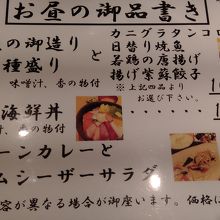 お昼の御品書き
の御造り
種盛り
と
味噌汁、香の物付
カニグラタンコロ
日替り焼魚
若鶏の唐揚げ
揚げ紫蘇餃子
※上記四品より
お選び下さい。
海鮮丼
香の物付
ーンカレーと
ムシーザーサラダ
容が異なる場合が御座います。価格に